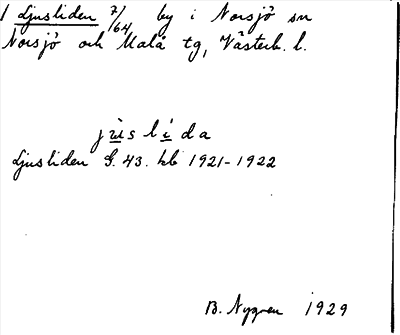 1 Ljusliden 7/64 by i Norsjö sn
Norsjö och Malå tg, Västerb. l.
jùslída
Ljusliden G. 43. kb 1921-1922
B. Nygren 1929